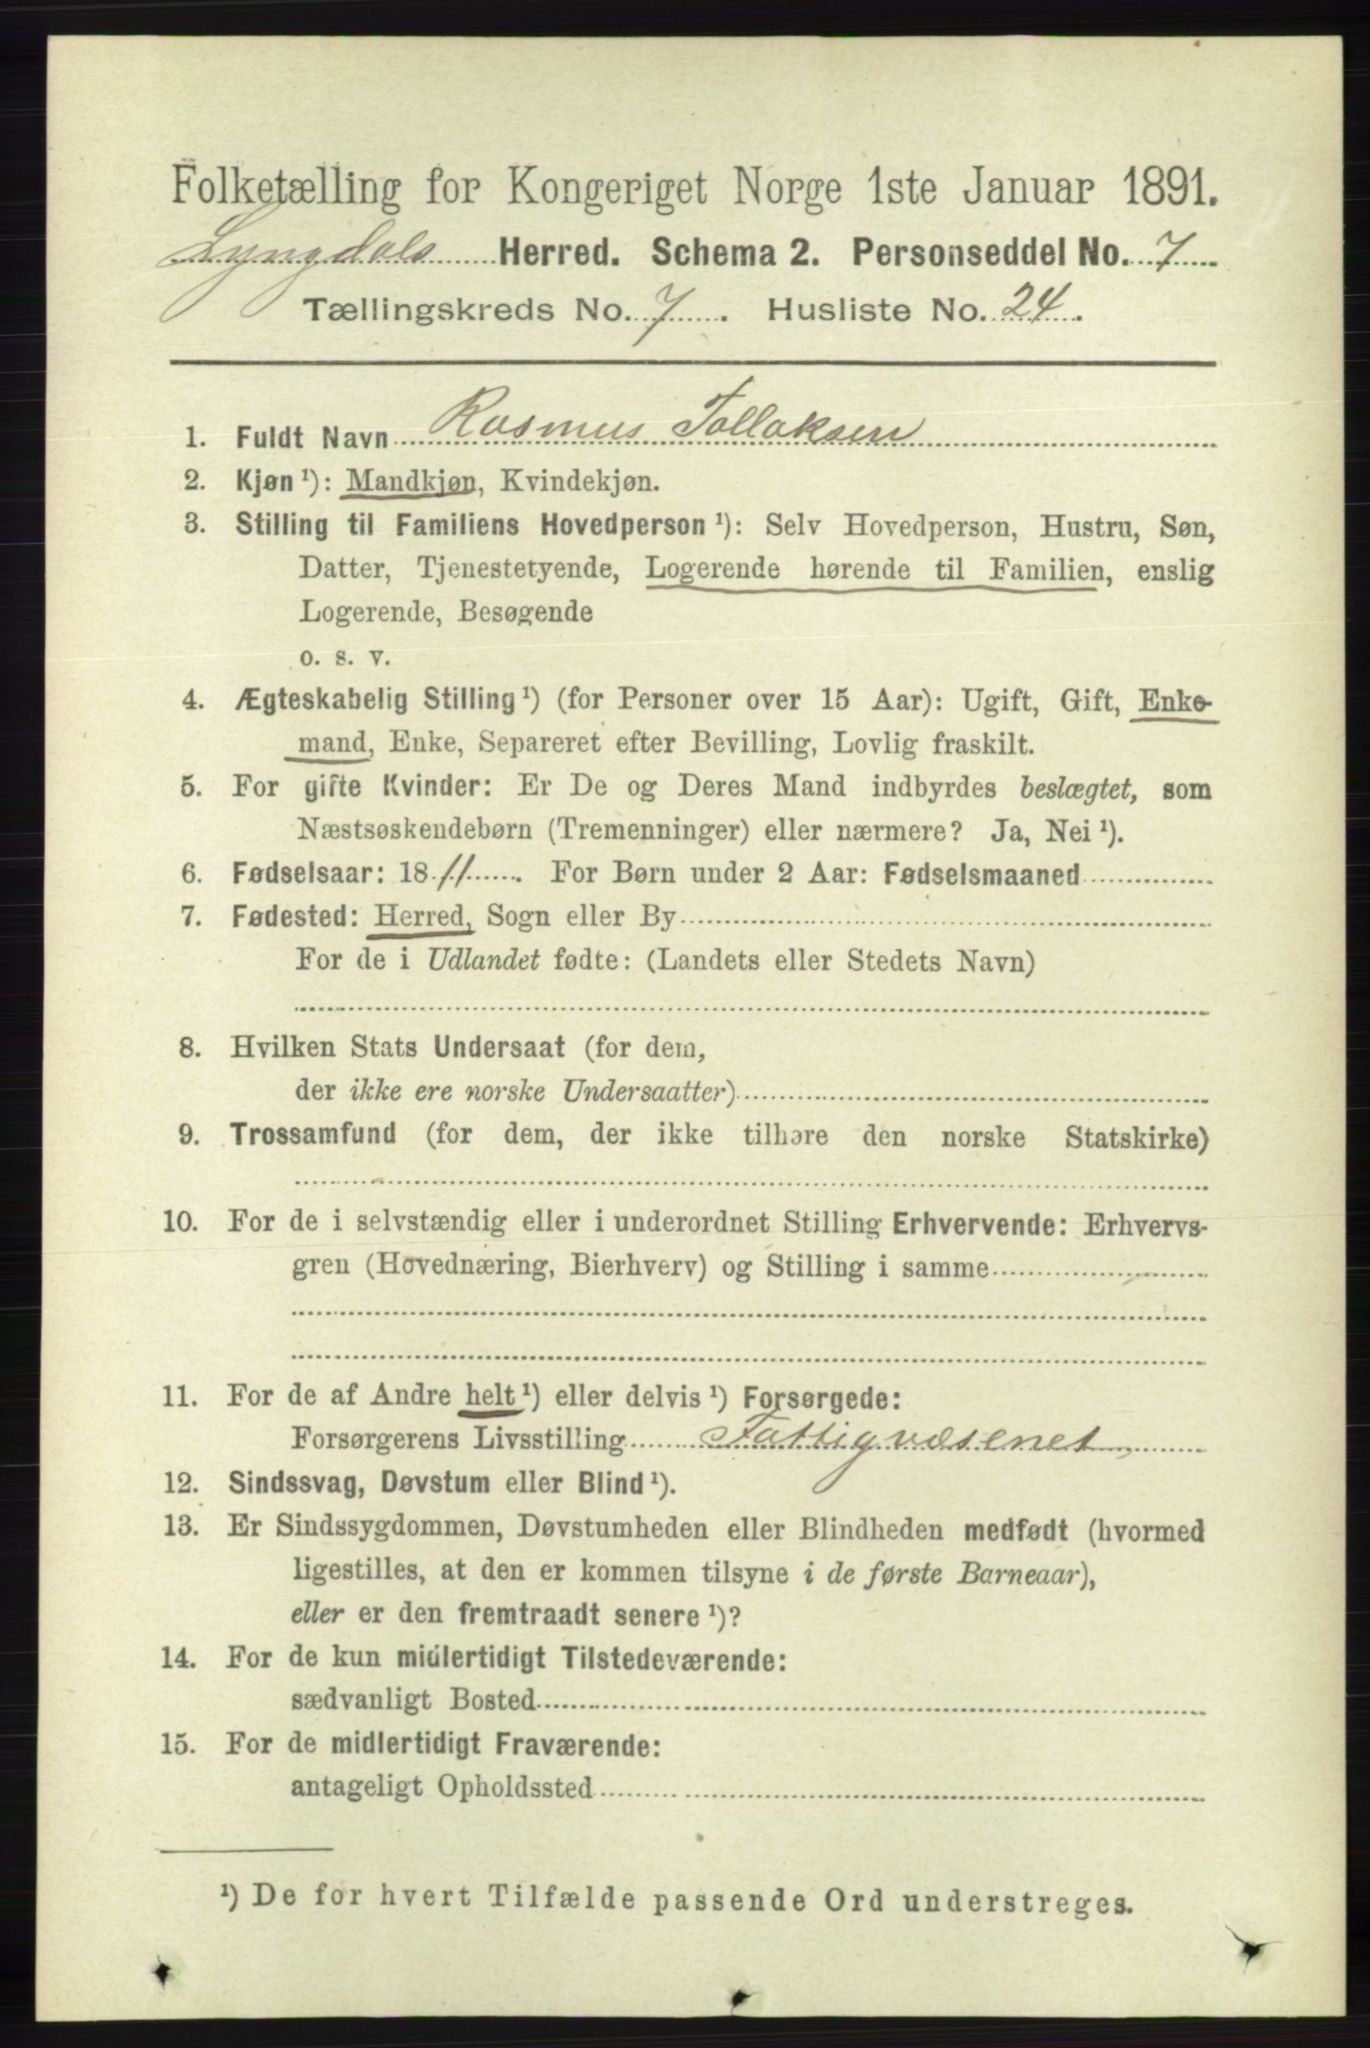 Folketælling for Kongeriget Norge 1ste Januar 1891.
Lyngdals Herred. Schema 2. Personseddel No. 7
Tællingskreds No. 7. Husliste No. 24.
1. Fuldt Navn Rasmus Tollaksen
2. Kjøn ¹): Mandkjøn, Kvindekjøn.
3. Stilling til Familiens Hovedperson ¹): Selv Hovedperson, Hustru, Søn,
Datter, Tjenestetyende, Logerende hørende til Familien, enslig
Logerende, Besøgende
o. s. v.
4. Ægteskabelig Stilling ¹) (for Personer over 15 Aar): Ugift, Gift, Enke-
mand, Enke, Separeret efter Bevilling, Lovlig fraskilt.
5. For gifte Kvinder: Er De og Deres Mand indbyrdes beslægtet, som
Næstsøskendebørn (Tremenninger) eller nærmere? Ja, Nei ¹).
6. Fødselsaar: 1811. For Børn under 2 Aar: Fødselsmaaned
7. Fødested: Herred, Sogn eller By
For de i Udlandet fødte: (Landets eller Stedets Navn)
8. Hvilken Stats Undersaat (for dem,
der ikke ere norske Undersaatter)
9. Trossamfund (for dem, der ikke tilhøre den norske Statskirke)
10. For de i selvstændig eller i underordnet Stilling Erhvervende: Erhvervs-
gren (Hovednæring, Bierhverv) og Stilling i samme
11. For de af Andre helt ¹) eller delvis ¹) Forsørgede:
Forsørgerens Livsstilling Fattigvæsenet
12. Sindssvag, Døvstum eller Blind ¹).
13. Er Sindssygdommen, Døvstumheden eller Blindheden medfødt (hvormed
ligestilles, at den er kommen tilsyne i de første Barneaar),
eller er den fremtraadt senere ¹)?
14. For de kun midlertidigt Tilstedeværende:
sædvanligt Bosted
15. For de midlertidigt Fraværende:
antageligt Opholdssted
¹) De for hvert Tilfælde passende Ord understreges.